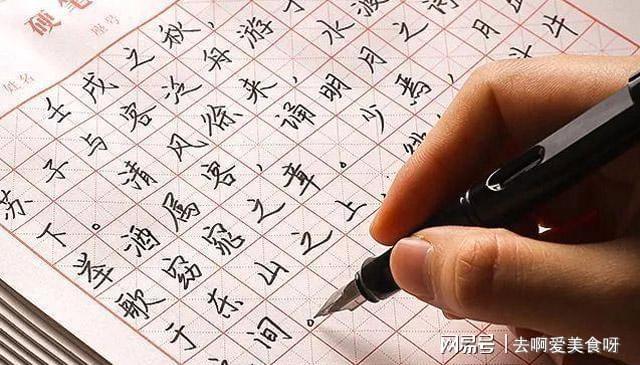 硬笔
座号
姓名
壬戌之秋，
苏子与客泛舟游于
下。清风徐来，水波
举酒属客，诵明月之诗
歌窈窕之章。少焉，月
于东山之上，斗牛
间。
网易号 | 去啊爱美食呀